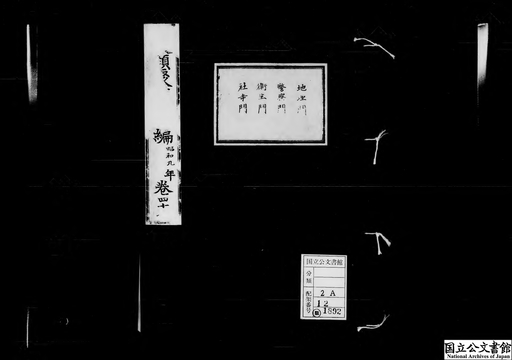 編
昭和九年
巻四十
地理門
警察門
衛生門
社寺門
国立公文書館
分類
配架番号
2 A
12
1892
国立公文書館
National Archives of Japan